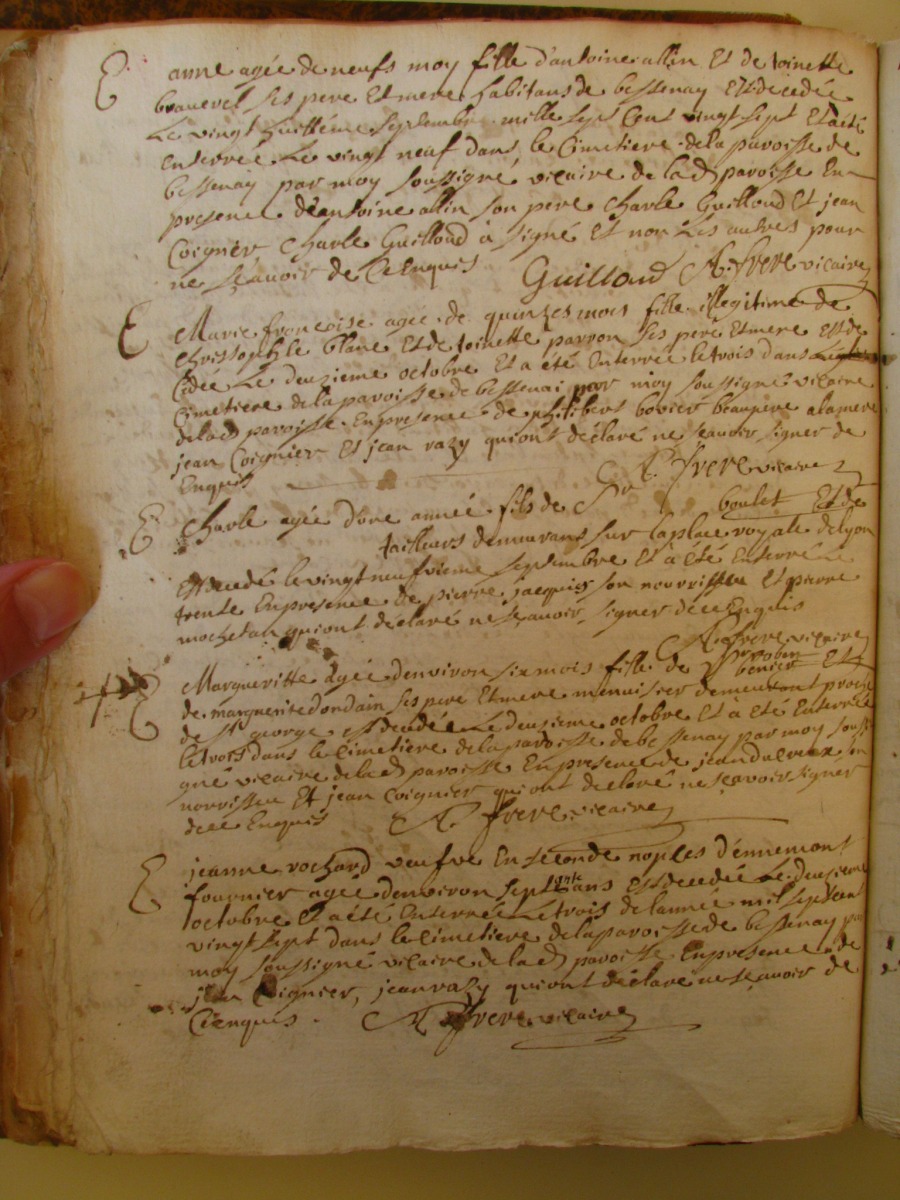 E anne agée de neufs moy fille d'antoine allin Et de toinette
brauevel ses pere Et mere habitans de bessenay Est decedée
Le vingt huittéme septembre mille sept Cent vingt sept Et a été
Enterrée Le vingt neuf dans le Cimetiere de la paroisse de
bessenay par moy soussigné vicaire de lad paroisse En
presence d'antoine allin son pere Charle Guilloud Et jean
Coignier Charle Guilloud à signé Et non Les autres pour
ne sçauoir de Ce Enquis Guilloud A. frere vicaire
E Marie francoise agee de quinzes mois fille illegitime de
Christophle blanc Et de toinette parron ses pere Et mere Est de
Cedée Le deuzieme octobre Et a été Enterrée le trois dans
Cimetiere de la paroisse de bessenai par moy soussigné vicaire
de lad paroisse En presence de philibert bovier beaupere a la mere
jean Coignier Et jean razy qui ont déclaré ne sçauoir signer de
Enquis A. frere vicaire
E Charle agée d'une année fils de Sr boulet Et de
tailleurs demeurans sur la place royale de lyon
Est decedé le vingt neufvieme septembre Et à été Enterré Le
trente En presence de pierre jacquis son nourrissier Et pierre
mochetan qui ont declaré ne sçauoir signer de ce Enquis
A. frere vicaire
E Margueritte agée d'environ six mois fille de Et
de marguerite dondain ses pere Et mere menuisier demeurant proche
de St george Est decedée Le deuzieme octobre Et à été Enterrée
le trois dans le Cimetiere de la paroisse de bessenay par moy soussi
gné vicaire de lad paroisse En presence de jean son
nourrissier Et jean Coignier qui ont declaré ne sçavoir signer
de ce Enquis A. frere vicaire
E jeanne rochard veufve En seconde nopces d'ennemont
fournier agée denviron septante ans Est decedée Le deuzieme
octobre Et a été Enterrée Le trois de lannée mil sept cent
vingt sept dans le Cimetiere de la paroisse de bessenay par
moy soussigné vicaire de lad paroisse En presence de
jean Coignier, jean razy qui ont déclaré ne sçauoir de
Ce enquis. A. frere vicaire